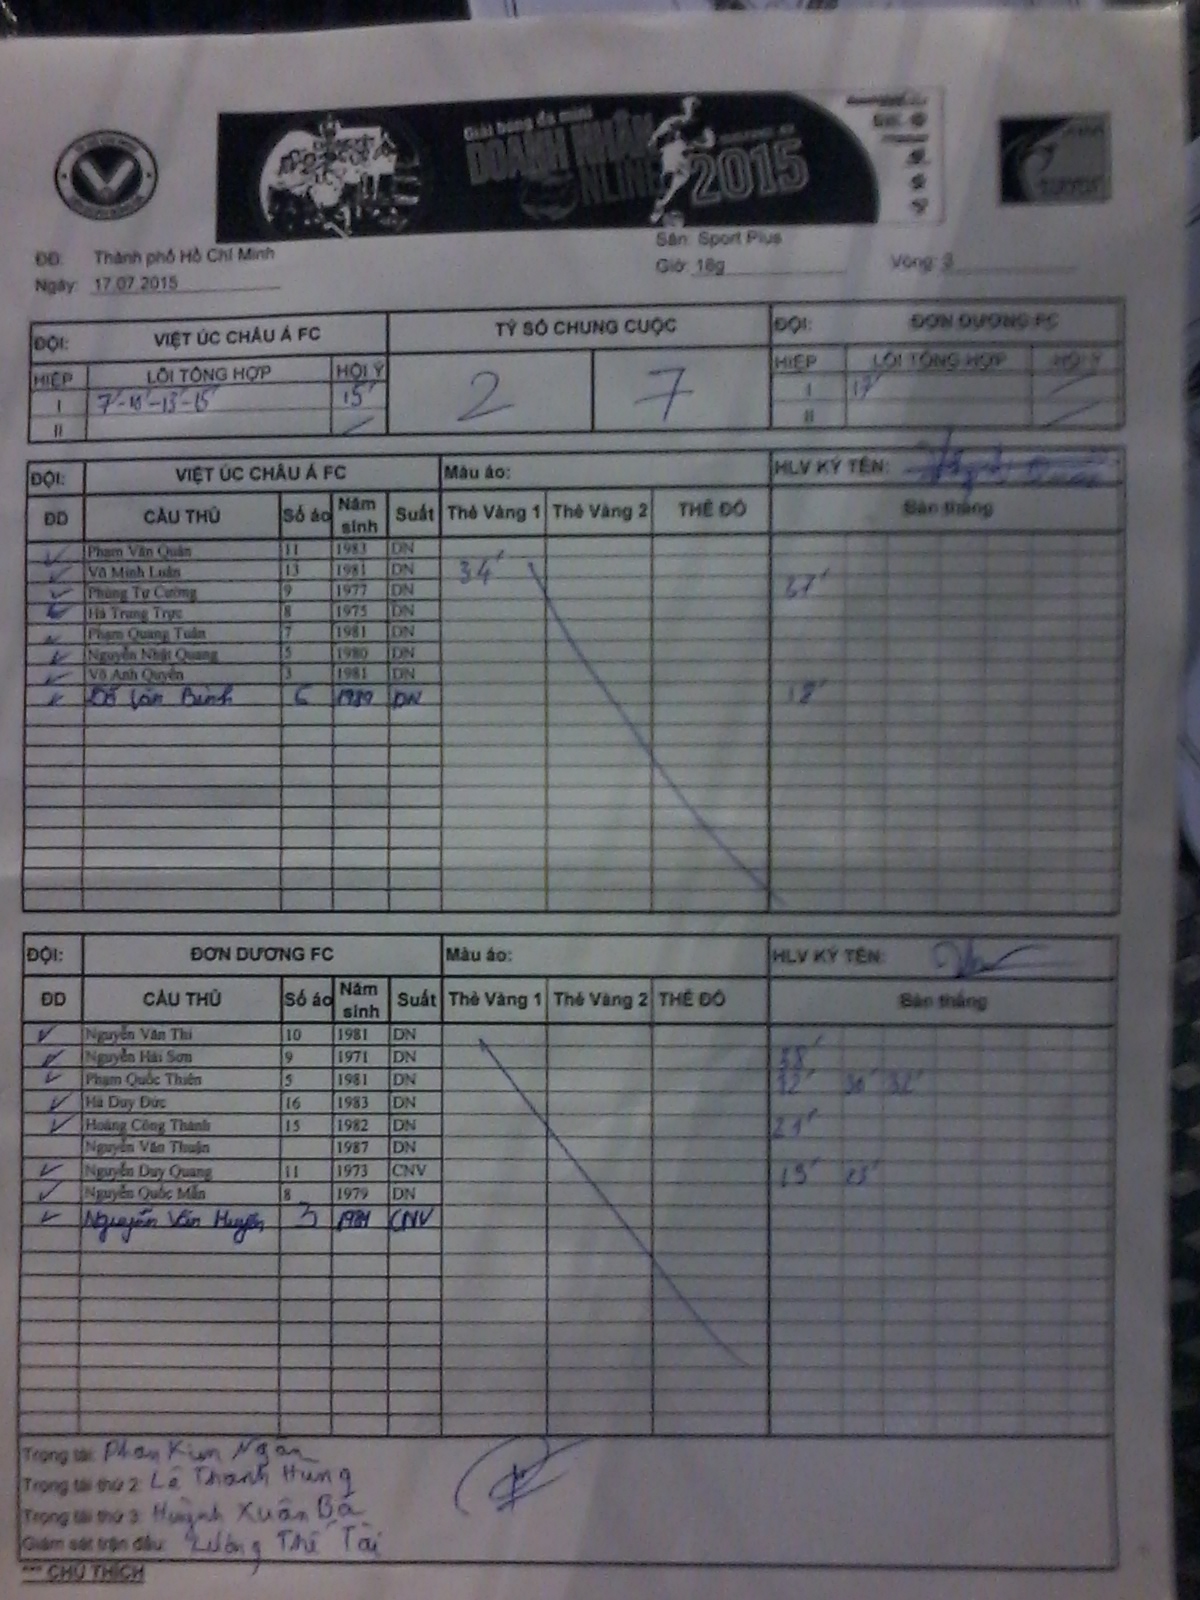 Giải bóng đá mini
DOANH NHÂN
NLINE 2015
ĐĐ: Thành phố Hồ Chí Minh
Sân: Sport Plus
Ngày: 17.07.2015
Giờ: 18g Vòng: 3
ĐỘI: VIỆT ÚC CHÂU Á FC TỶ SỐ CHUNG CUỘC ĐỘI: ĐƠN DƯƠNG FC
HIỆP LỖI TỔNG HỢP HỘI Ý 2 7 HIỆP LỖI TỔNG HỢP HỘI Ý
I 15' I 17'
II II
ĐỘI: VIỆT ÚC CHÂU Á FC Màu áo: HLV KÝ TÊN:
ĐD CẦU THỦ Số áo Năm sinh Suất Thẻ Vàng 1 Thẻ Vàng 2 THẺ ĐỎ Bàn thắng
Phạm Văn Quân 11 1983 DN
Võ Minh Luân 13 1981 DN 34'
Phùng Tự Cường 9 1977 DN
Hà Trung Trực 8 1975 DN
Phạm Quang Tuấn 7 1981 DN
Nguyễn Nhật Quang 5 1980 DN
Võ Anh Quyền 3 1981 DN
Đỗ Văn Bình 6 DN 18'
ĐỘI: ĐƠN DƯƠNG FC Màu áo: HLV KÝ TÊN:
ĐD CẦU THỦ Số áo Năm sinh Suất Thẻ Vàng 1 Thẻ Vàng 2 THẺ ĐỎ Bàn thắng
Nguyễn Văn Thi 10 1981 DN
Nguyễn Hải Sơn 9 1971 DN
Phạm Quốc Thiên 5 1981 DN
Hà Duy Đức 16 1983 DN
Hoàng Công Thành 15 1982 DN 21'
Nguyễn Văn Thuận 1987 DN
Nguyễn Duy Quang 11 1973 CNV
Nguyễn Quốc Mẫn 8 1979 DN
Nguyễn Văn Huyền 3 CNV
Trọng tài: Phan Kim Ngân
Trọng tài thứ 2: Lê Thanh Hùng
Trọng tài thứ 3: Huỳnh Xuân Bá
Giám sát trận đấu: Lương Thế Tài
*** CHÚ THÍCH